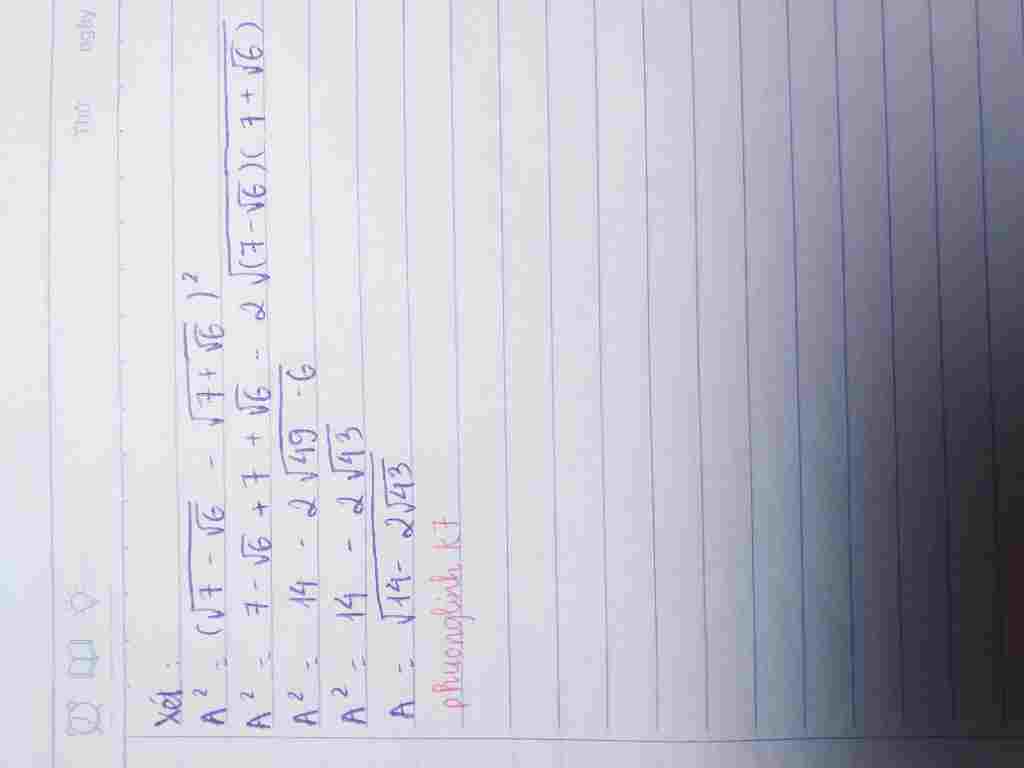 Thứ Ngày
Xét:
A² = (√(7 - √6) - √(7 + √6))²
A² = 7 - √6 + 7 + √6 - 2√((7 - √6)(7 + √6))
A² = 14 - 2√(49 - 6)
A² = 14 - 2√43
A = √(14 - 2√43)
phuonglinh k7